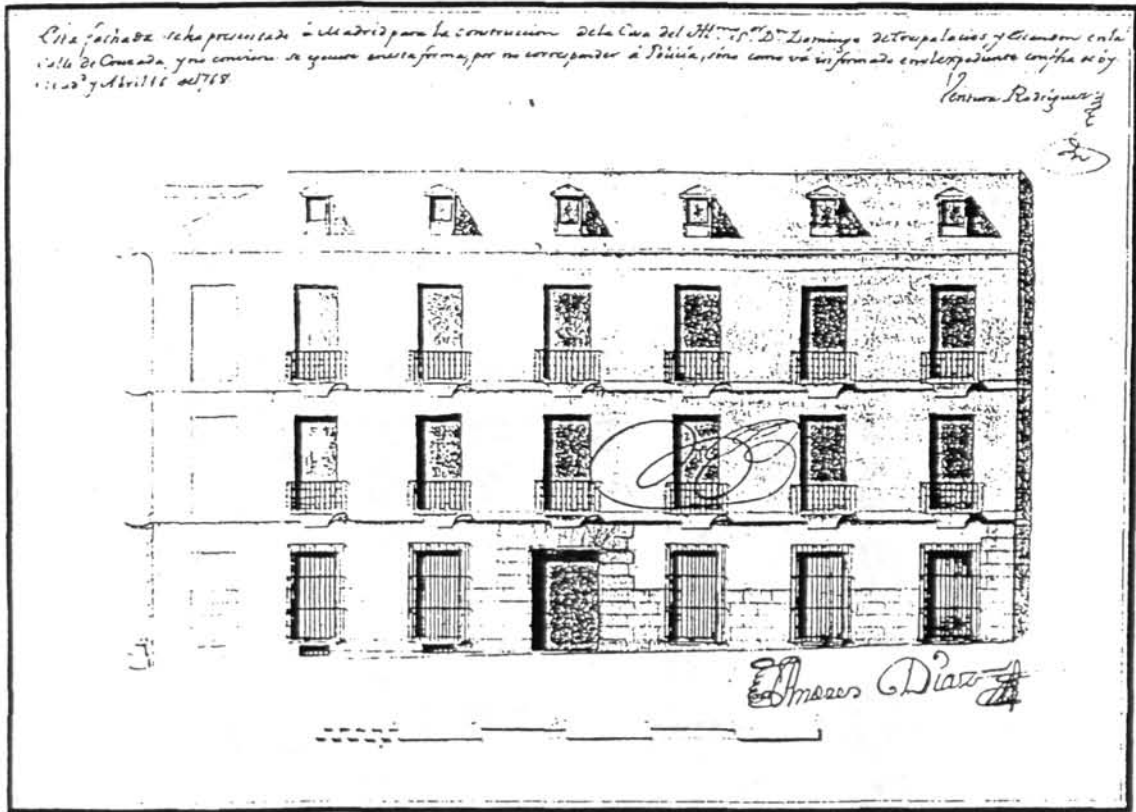 Esta fachada se ha presentado à Madrid para la construccion de la Casa del Ill.mo S.or D.n Domingo de Trespalacios y Escandon en la
Calle de Y no conviene se egecute en esta forma, por no corresponder à Policia, sino como vá informado en el expediente con fha de oy
Abril 16 de 1768
Ventura Rodriguez
Andres Diaz